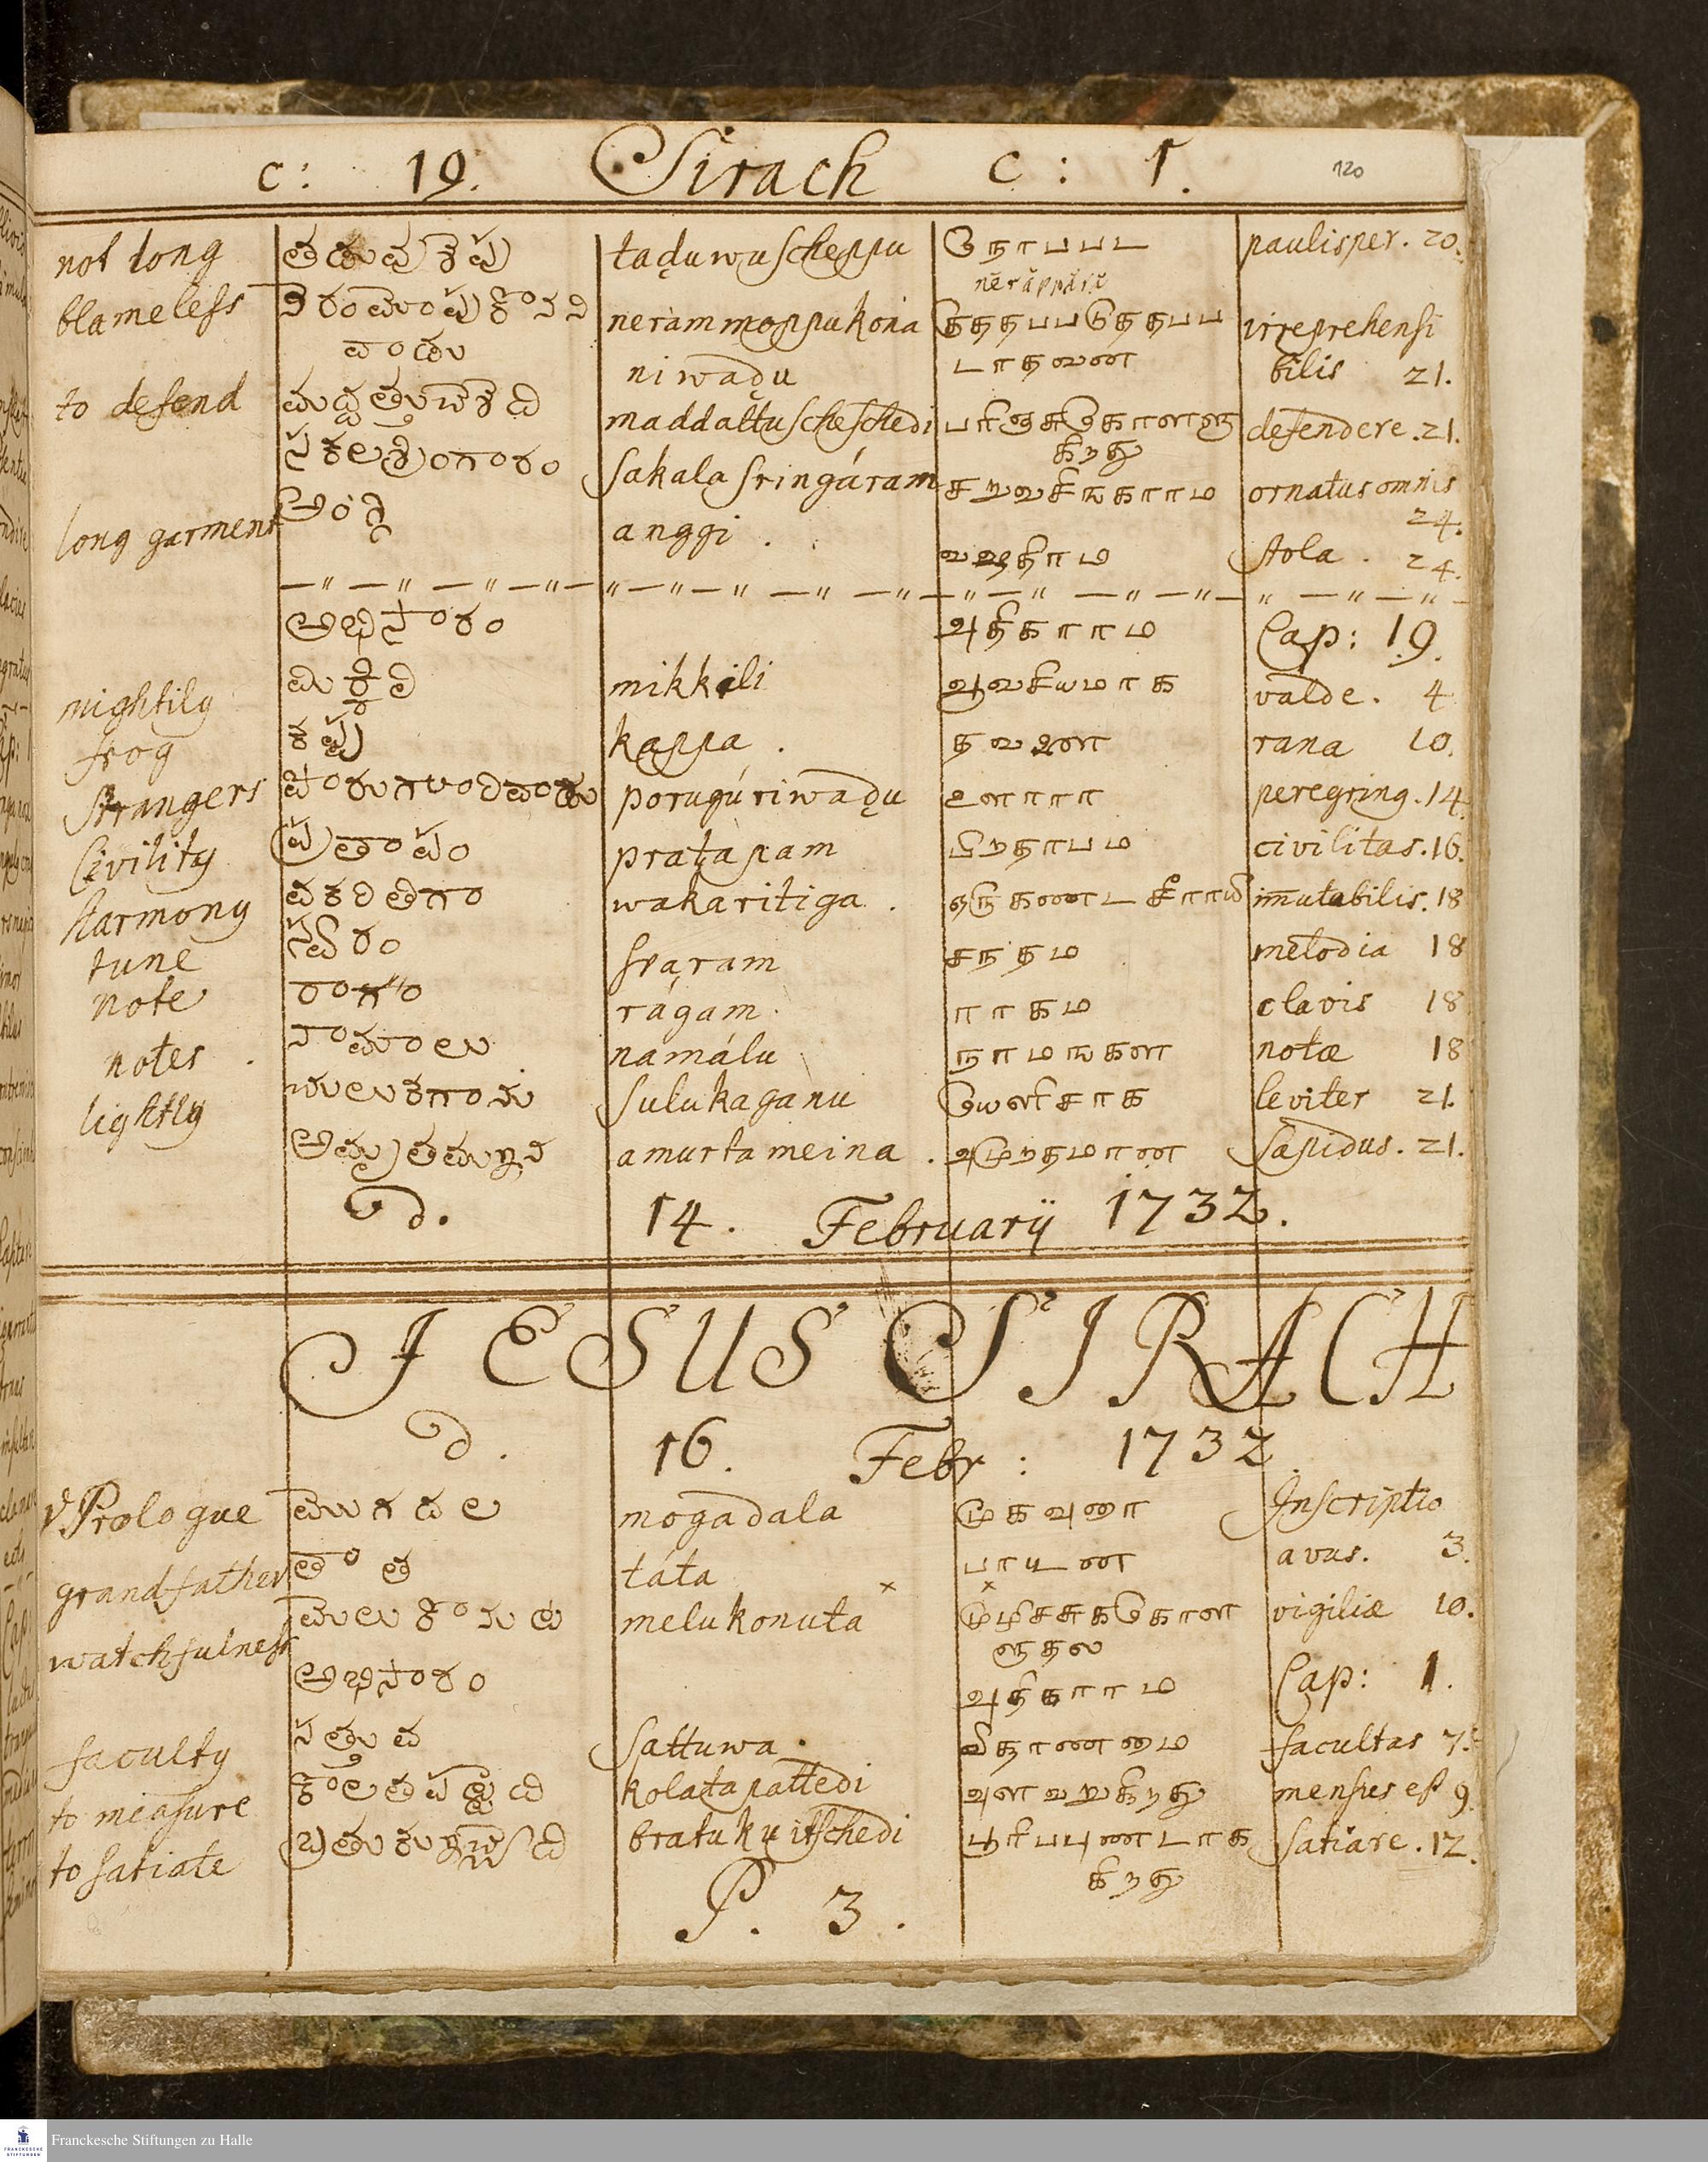 c: 19. Sirach c: 1. 120
not long తడువు శెప్పు taḍuwu scheppu நேரபபட paulisper. 20.
nērāppāṙŭ
blameless నేరం మొప్పుకోనని neràm moppukona குததபபடுததபப irreprehensi
వాండు ni wāḍu டாதவன bilis 21.
to defend మద్దత్తు చేశేది maddattu scheschedi பரிஞசுகொளளு defendere. 21.
கிறது
సకల శ్రింగారం sakala sringáram சறுவசிஙகாரம ornatus omnis
24.
long garment అంగ్గి anggi. வஷதிரம stola. 24.
అధికారం அதிகாரம Cap: 19.
mightily మిక్కిలి mikkili அவசியமாக valde. 4
frog కప్ప kappa. தவளை rana 10.
strangers పోరుగూరివాడు porugúriwāḍu ஊரார peregrinq. 14.
Civility ప్రతాపం pratapam பிறதாபம civilitas. 16.
harmony వకరితిగా wakaritiga. ஒருகணடசீராய immutabilis. 18
tune స్వరం svaram சநதம melodia 18
note రాగం rágam. ராகம clavis 18
notes. నామాలు namálu நாமஙகள notæ 18
lightly సులుకగాను sulukaganu லேசாக leviter 21.
అమృతమైన amurta meina. அமுறதமான sapidus. 21.
d. 14. Februarÿ 1732.
JESUS SIRACH
d. 16. Febr: 1732.
Prologue మొగదల mogadala முகவுரை Inscriptio
grandfather తాత táta பாடன avus. 3.
watchfulness మేలుకోనుట melukonuta முழிசசுககொள vigiliæ 10.
ளுதல
అధికారం அதிகாரம Cap: 1.
faculty సత్తువ sattuwa. விதரணம facultas 7.
to measure కోలతపట్టేది kolata pattedi அளவறுகிறது mensus est 9.
to satiate బ్రతుకు ఇచ్చేది bratuku itschedi பூரிபபுணடாக satiare. 12.
கிறது
P. 3.
Franckesche Stiftungen zu Halle